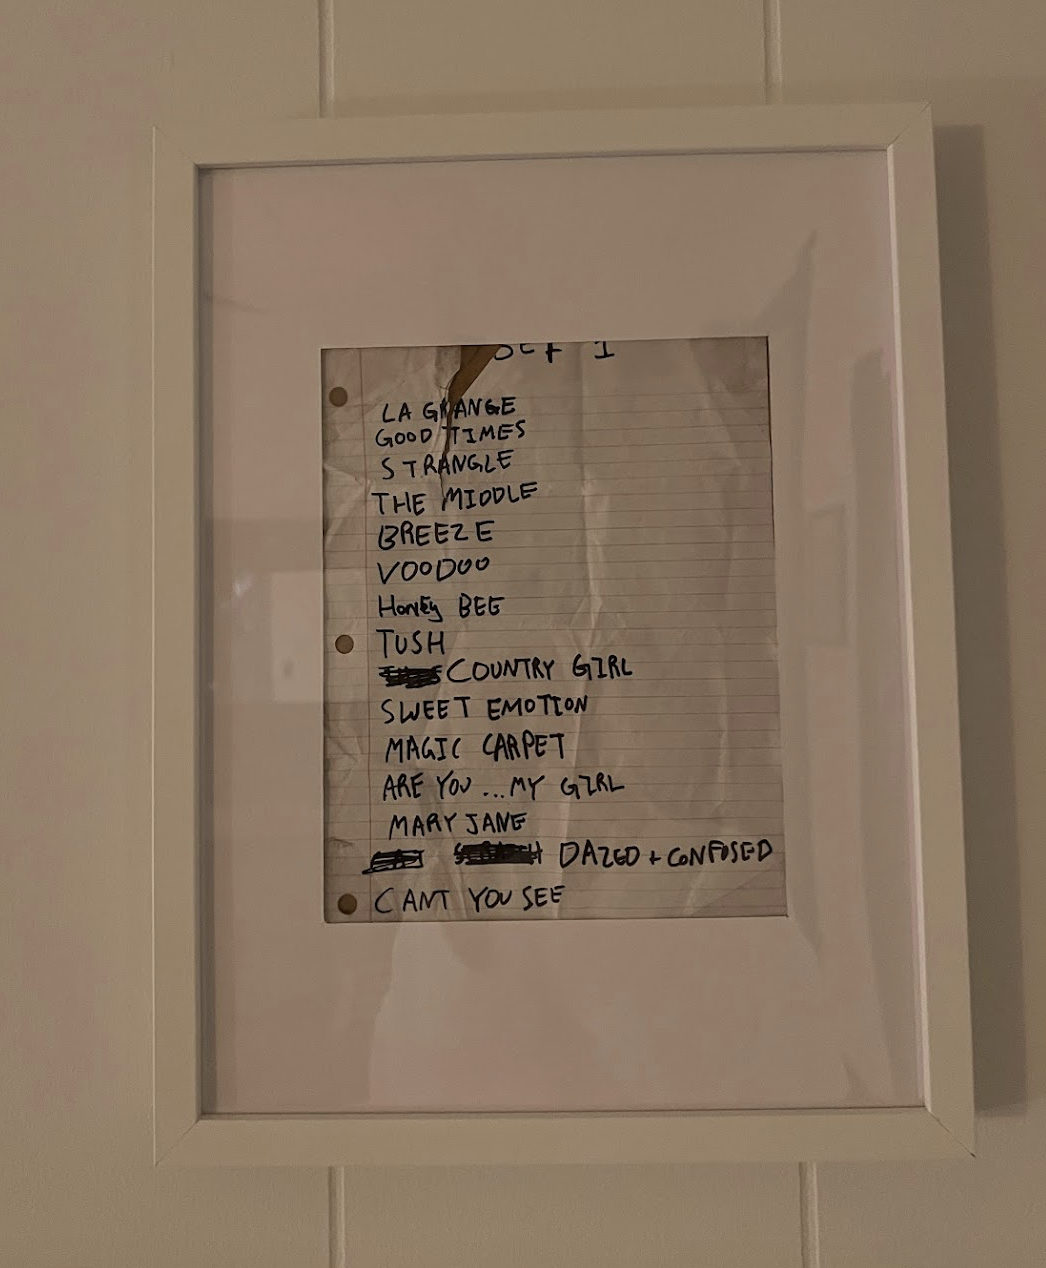 Set 1
LA GRANGE
GOOD TIMES
STRANGLE
THE MIDDLE
BREEZE
VOODOO
Honey BEE
TUSH
COUNTRY GIRL
SWEET EMOTION
MAGIC CARPET
ARE YOU ... MY GIRL
MARY JANE
DAZED + CONFUSED
CANT YOU SEE